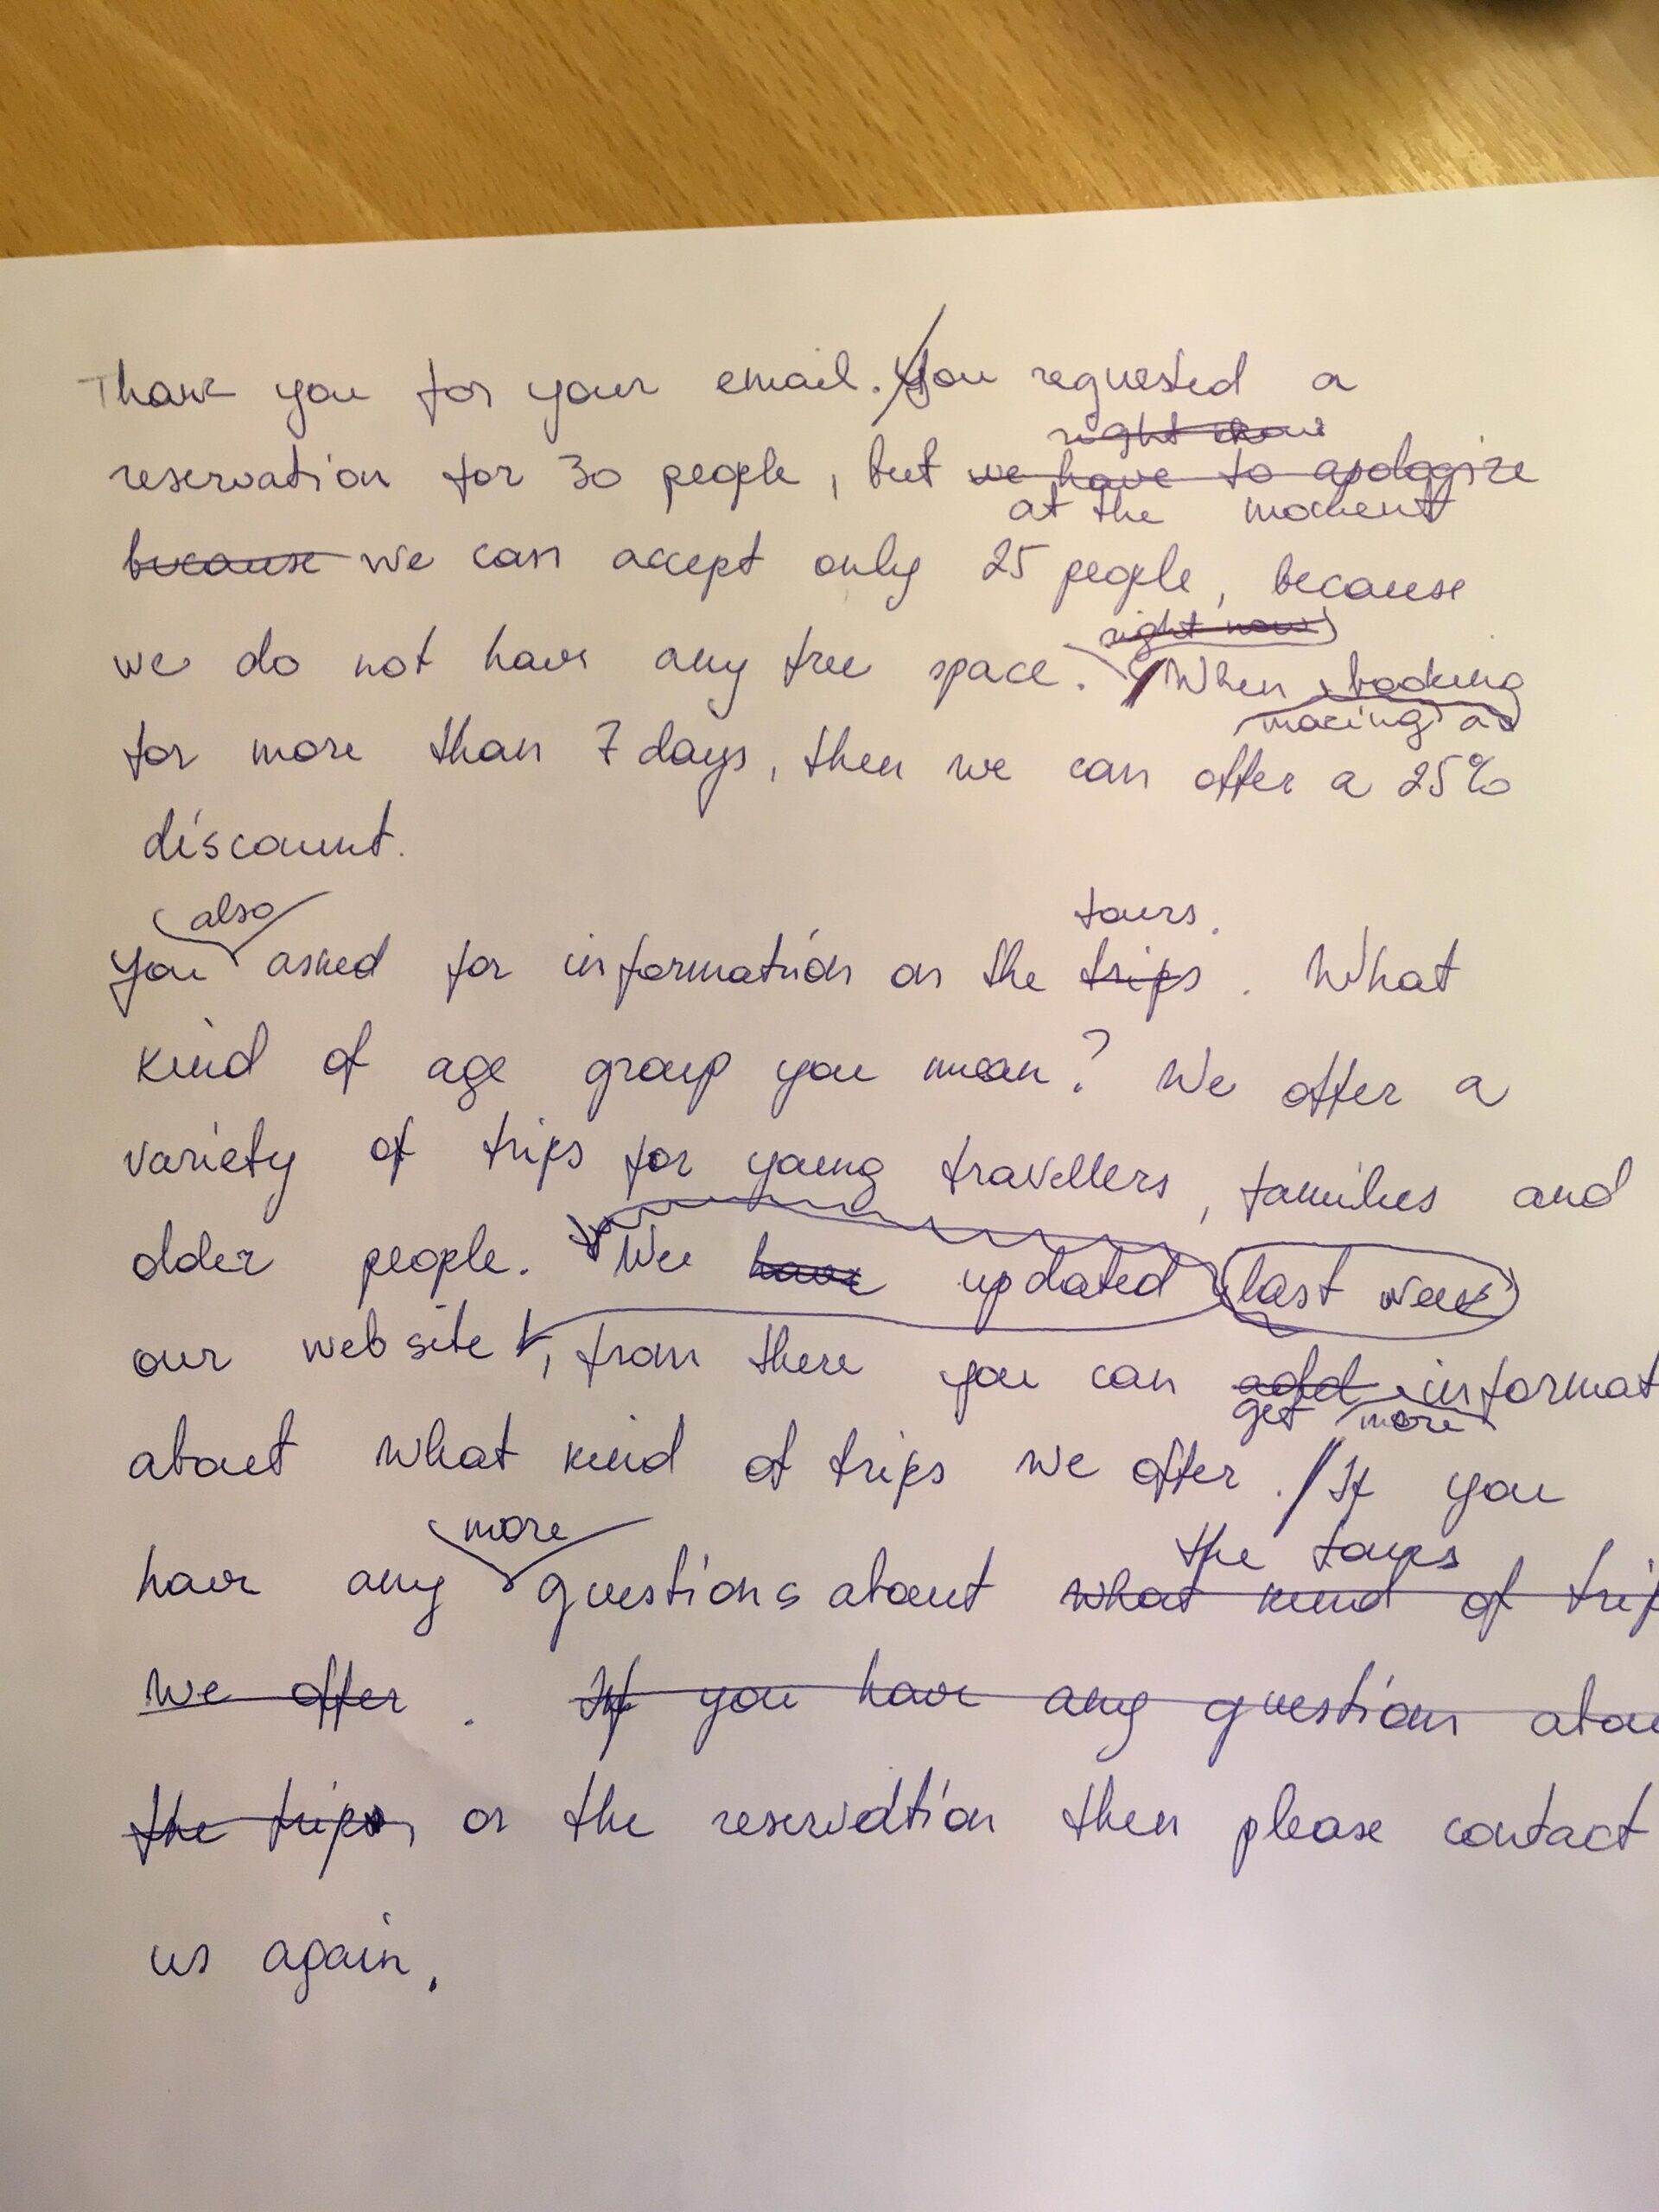 Thank you for your email. You requested a
right now
reservation for 30 people, but we have to apologize
at the moment
because we can accept only 25 people, because
right now
we do not have any free space. When booking
making a
for more than 7 days, then we can offer a 25%
discount.
also
tours.
You asked for information on the trips. What
kind of age group you mean? We offer a
variety of trips for young travellers, families and
older people. We have updated last week
our website, from there you can add informat
get more
about what kind of trips we offer. If you
more
the tours
have any questions about what kind of trip
we offer. If you have any question abou
the trips, or the reservation then please contact
us again.